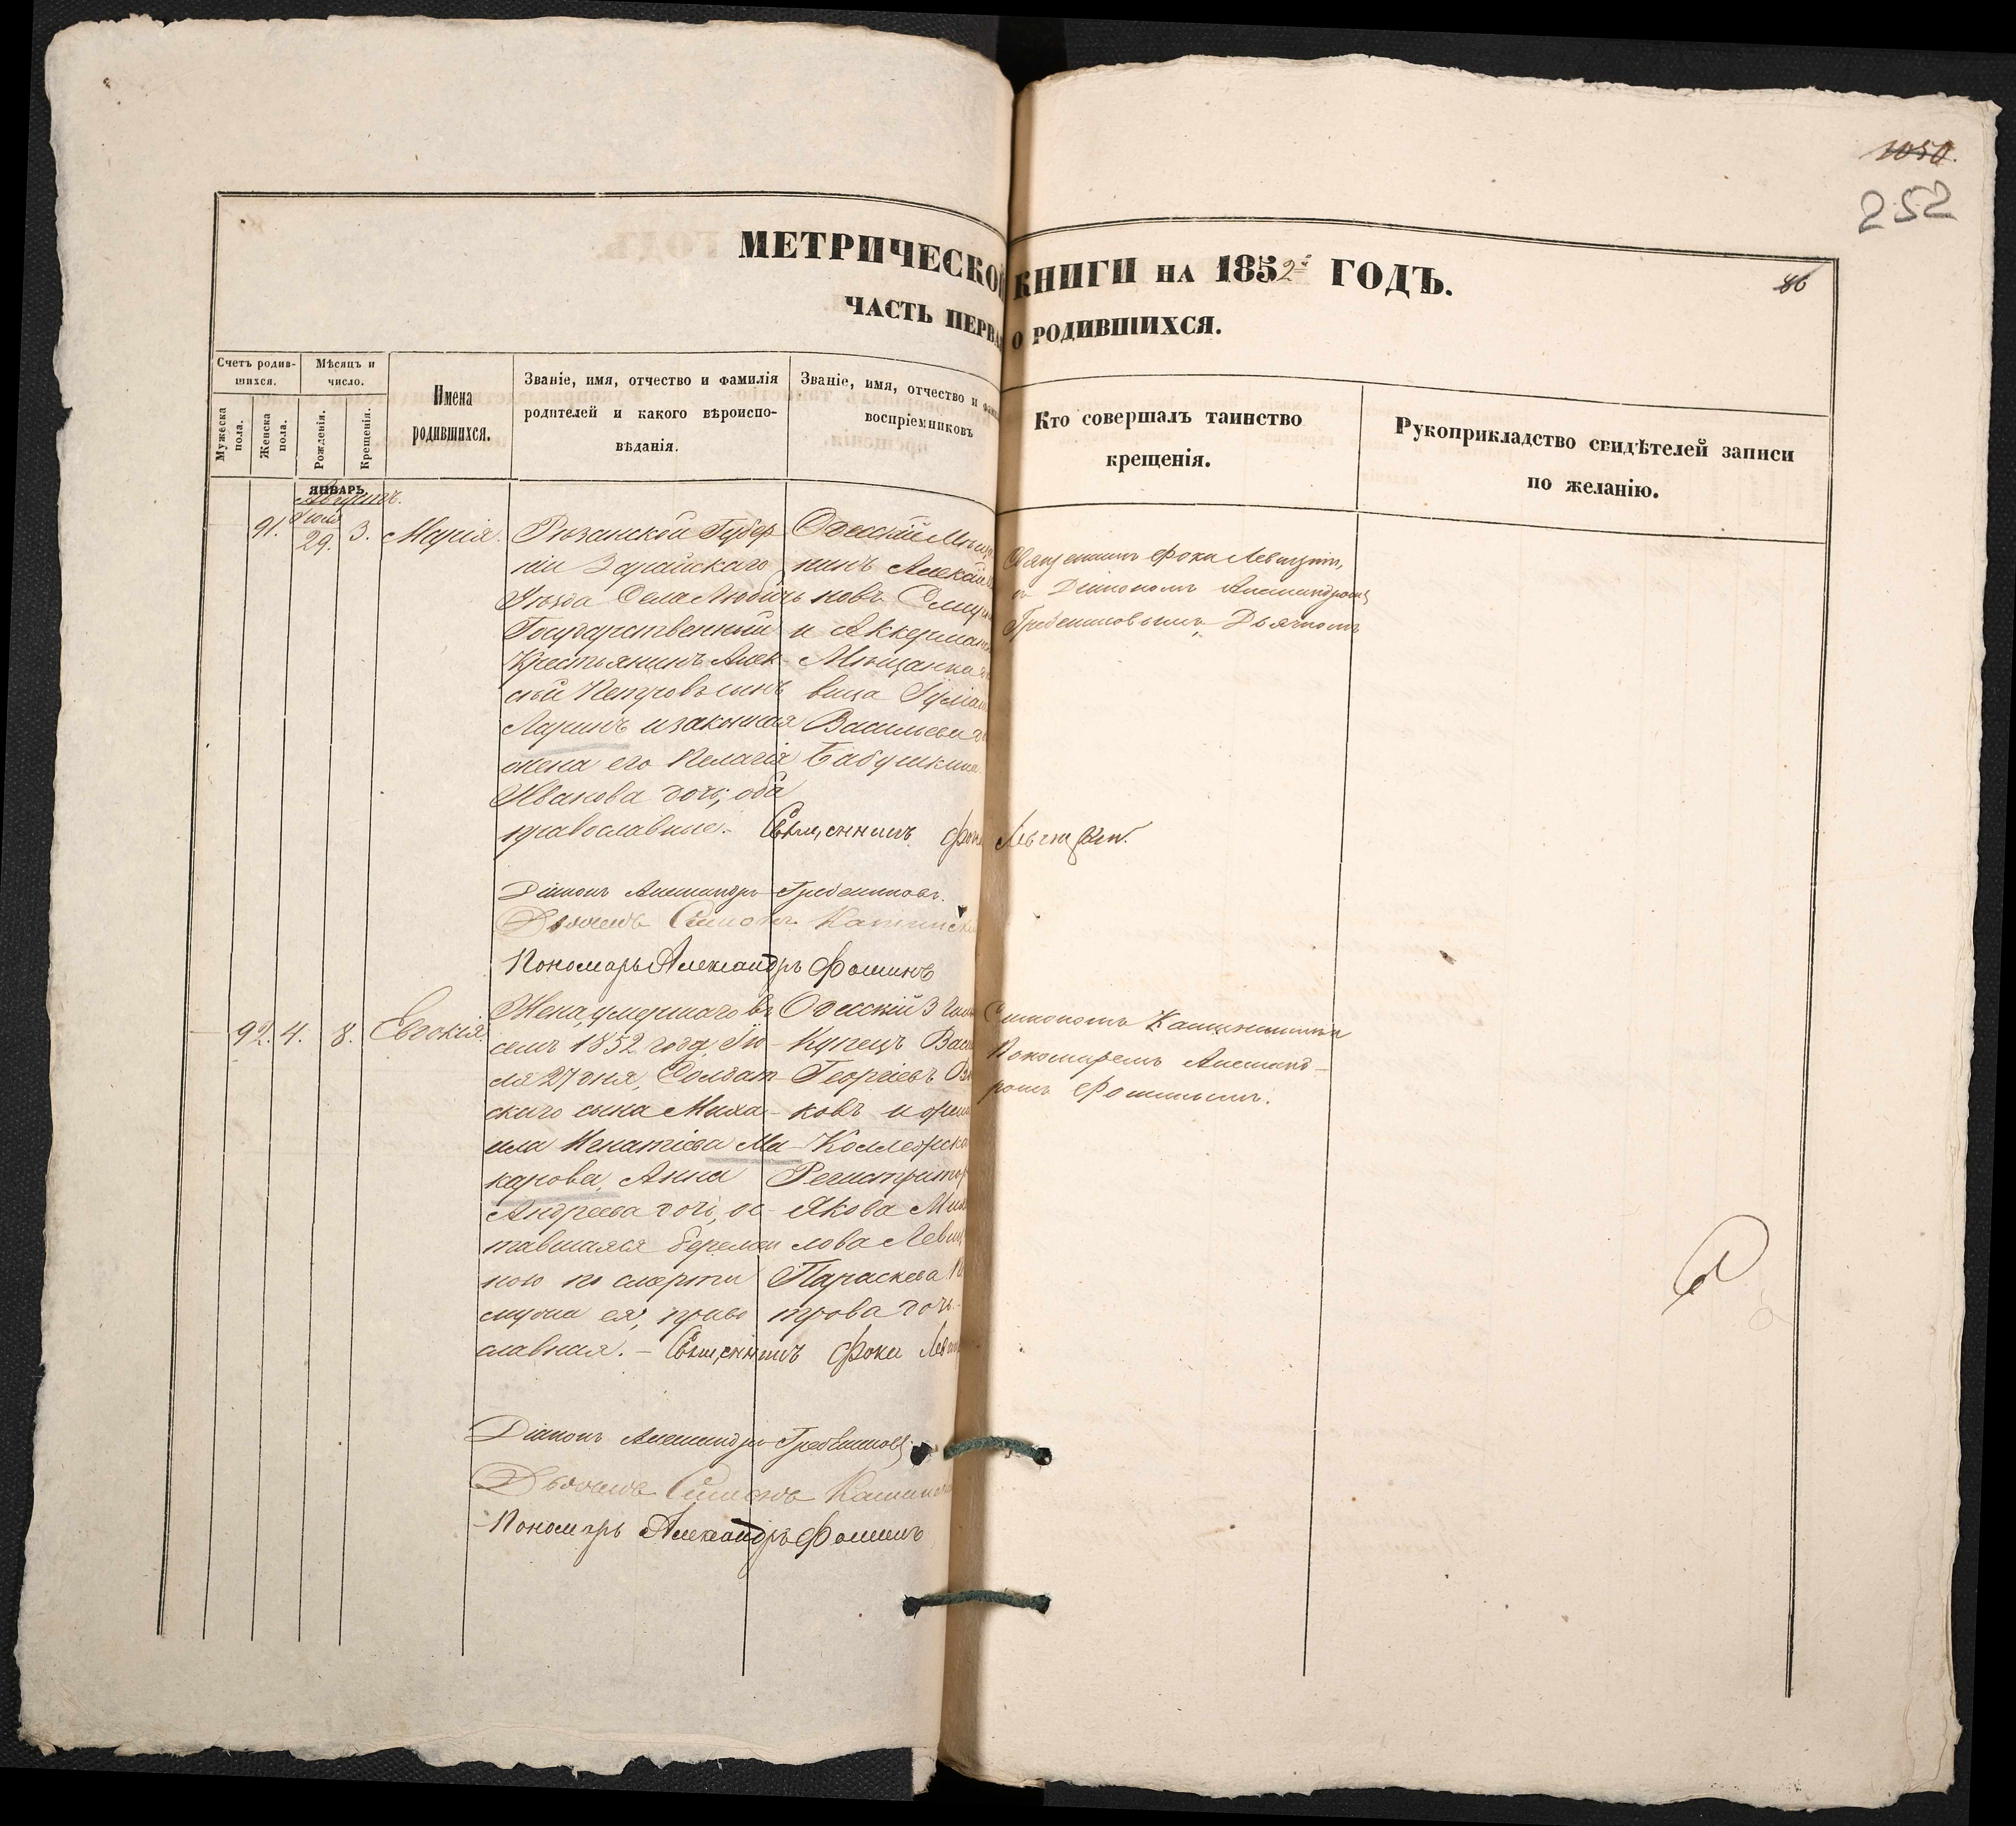 1050.
252
86
МЕТРИЧЕСКОЙ КНИГИ НА 1852й ГОДЪ.
ЧАСТЬ ПЕРВА О РОДИВШИХСЯ.
Счетъ родив-
шихся.
Мѣсяцъ и
число.
Мужеска
пола.
Женска
пола.
Рожденія.
Крещенія.
Имена
родившихся.
Званіе, имя, отчество и фамилія
родителей и какого вѣроиспо-
вѣданія.
Званіе, имя, отчество и фам
воспріемниковъ
Кто совершалъ таинство
крещенія.
Рукоприкладство свидѣтелей записи
по желанію.
ЯНВАРЬ
Августъ.
Іюля
91. 29. 3. Марія.
Рязанской Губер
ніи Зарайскаго
Уѣзда Села Любичь
Государственный
Крестьянинъ Алек-
сѣй Петровъ сынъ
Ларинъ и законная
жена его Пелагія
Иванова дочь, оба
православные.
Одесскій Мѣща
нинъ Алексѣй
новъ
и Аккерман
Мѣщанка
вица
Васильева до
Бабушкина.
Священникъ Фока Левицкій,
съ Діакономъ Александромъ
Гребенниковымъ, Дьячкомъ
Священникъ Фока Левицкій.
Діаконъ Александръ Гребенниковъ.
Дьячекъ Симонъ Кашинск
Пономарь Александръ Фоминъ
92. 4. 8. Евдокія.
Жена, умершаго въ
семъ 1852 году, Ію-
ля 27 дня, Солдат-
скаго сына Миха-
ила Игнатіева Ма-
карова, Анна
Андреева дочь, ос-
тавшаяся беремен
ною по смерти
мужа ея, право
славная.
Одесскій 3 Гиль
Купецъ Васи
Георгіевъ
ковъ и
Коллежска
Регистратор
Якова Миха
лова Левиц
Параскева П
трова дочь.
Симономъ Кашинскимъ и
Пономаремъ Александ-
ромъ Фоминымъ.
Священникъ Фока Леви
Діаконъ Александръ Гребенниковъ
Дьячекъ Симонъ Кашинск
Пономарь Александръ Фоминъ